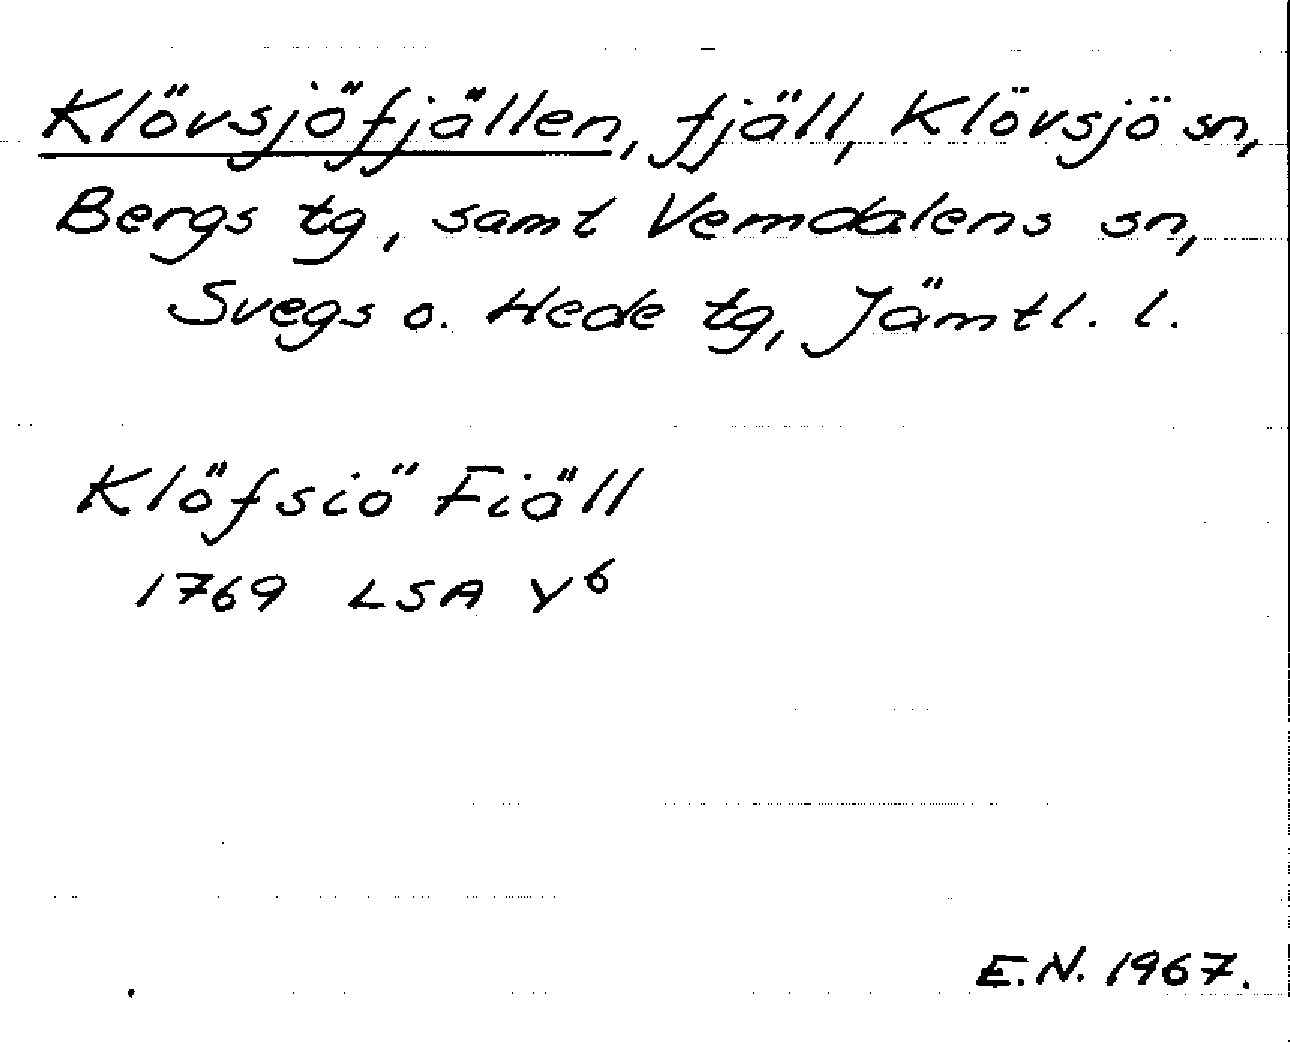 Klövsjöfjällen, fjäll, Klövsjö sn,
Bergs tg, samt Vemdalens sn,
Svegs o. Hede tg, Jämtl. l.
Klöfsiö Fiäll
1769 LSA Y⁶
E.N. 1967.